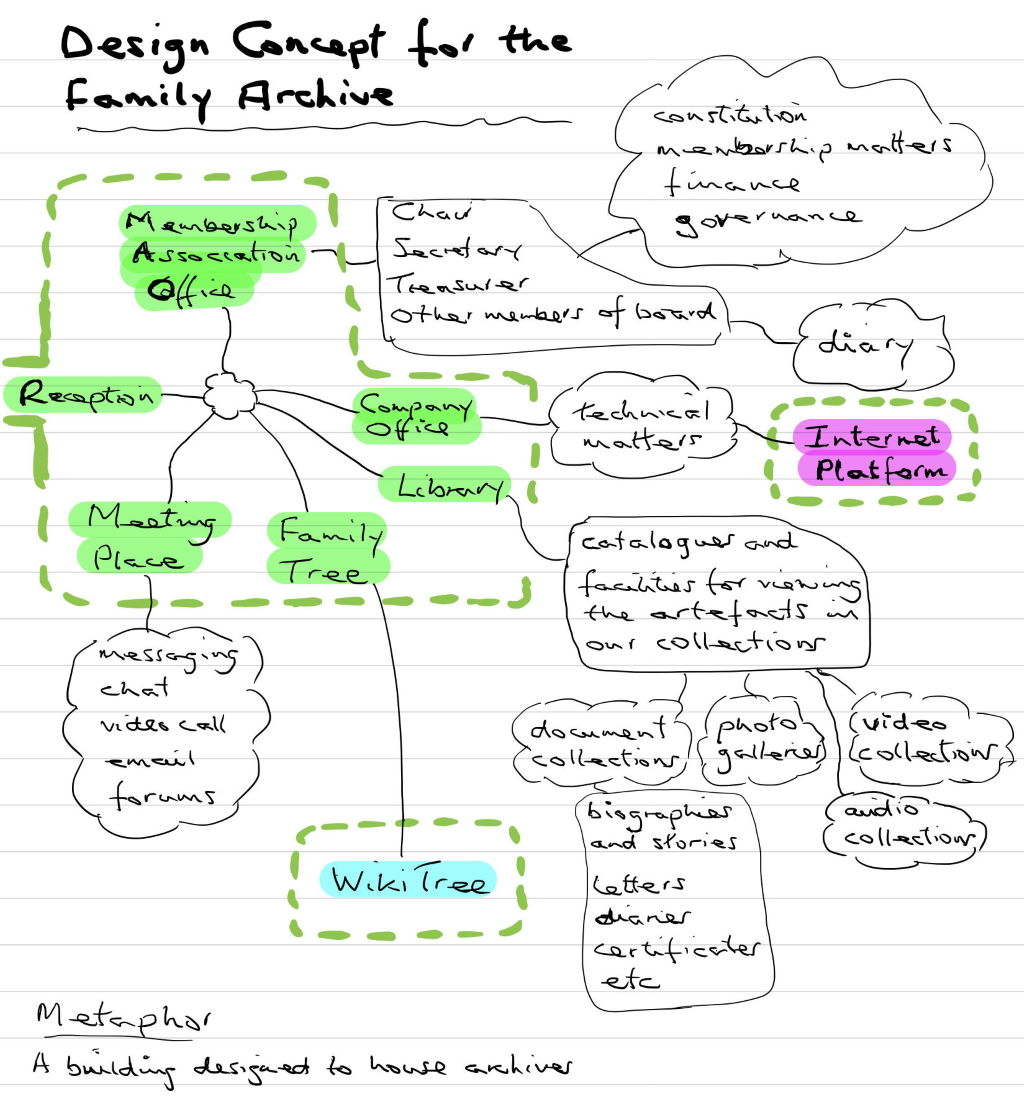 Design Concept for the
Family Archive
constitution
membership matters
finance
governance
Membership
Association
Office
Chair
Secretary
Treasurer
Other members of board
diary
Reception
Company
Office
technical
matters
Internet
Platform
Library
Meeting
Place
Family
Tree
catalogues and
facilities for viewing
the artefacts in
our collections
messaging
chat
video call
email
forums
document
collections
photo
galleries
video
collections
audio
collections
biographies
and stories
letters
diaries
certificates
etc
WikiTree
Metaphor
A building designed to house archives